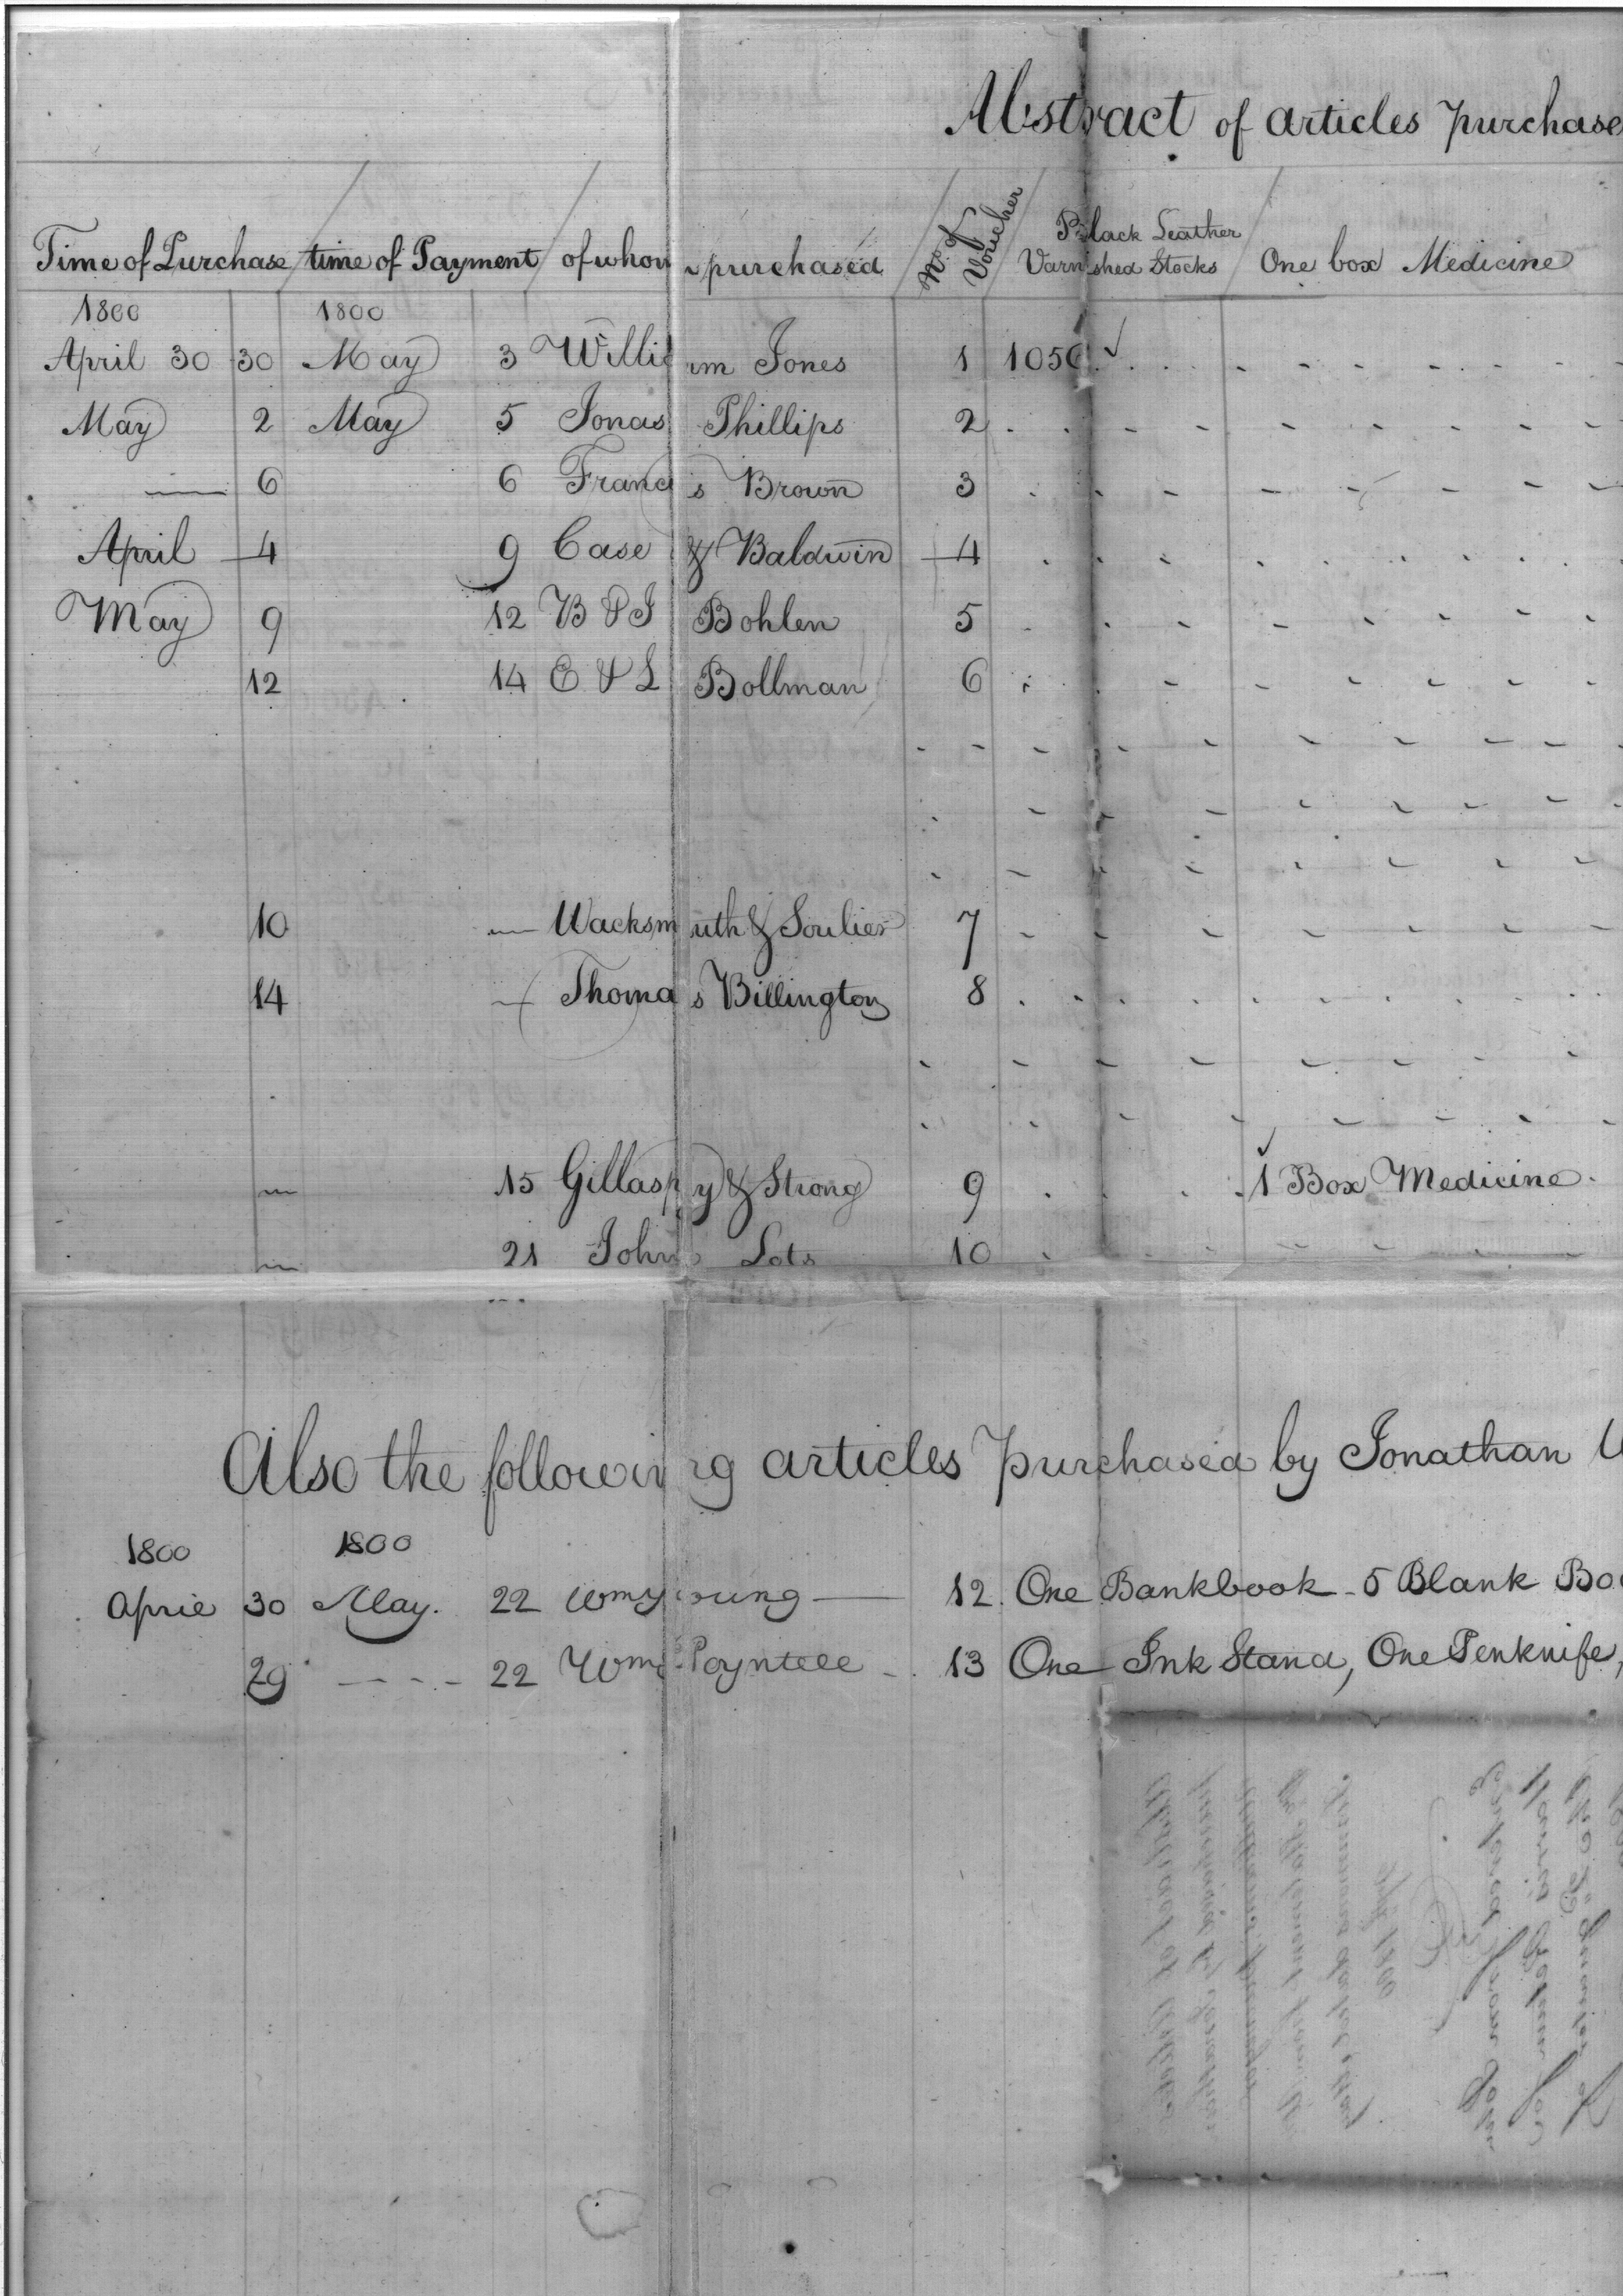 Abstract of articles purchase
Time of Purchase time of Payment of whom purchased No. of Voucher Black Leather Varnished Stocks One box Medicine
1800 1800
April 30 30 May 3 William Jones 1 1056
May 2 May 5 Jonas Phillips 2
6 6 Francis Brown 3
April 4 9 Case & Baldwin 4
May 9 12 B & J Bohlen 5
12 14 E & L Bollman 6
10 Wacksmuth & Soulier 7
14 Thomas Billington 8
15 Gillaspy & Strong 9 1 Box Medicine
21 John Lots 10
Also the following articles purchased by Jonathan W
1800 1800
April 30 May. 22 Wm Young 12. One Bankbook - 5 Blank Boo
29 22 Wm Poyntell 13 One Ink Stand, One Penknife,